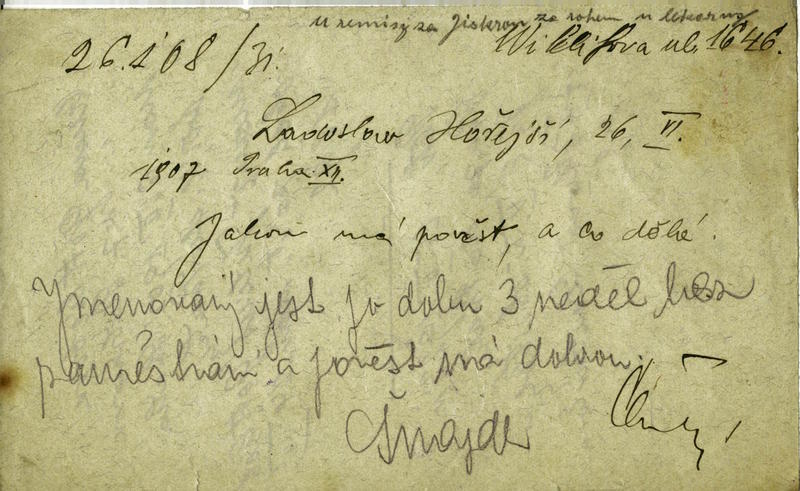 u remisy za Jiskrou za rohem u lékárny
26.1 08/31. Wiklifova ul. 1646.
Ladislav Hořejší, 26, VI.
1907 Praha XII.
Jakou má pověst, a co dělá.
Jmenovaný jest po dobu 3 neděl bez
zaměstnání a pověst má dobrou.
Šnajdr